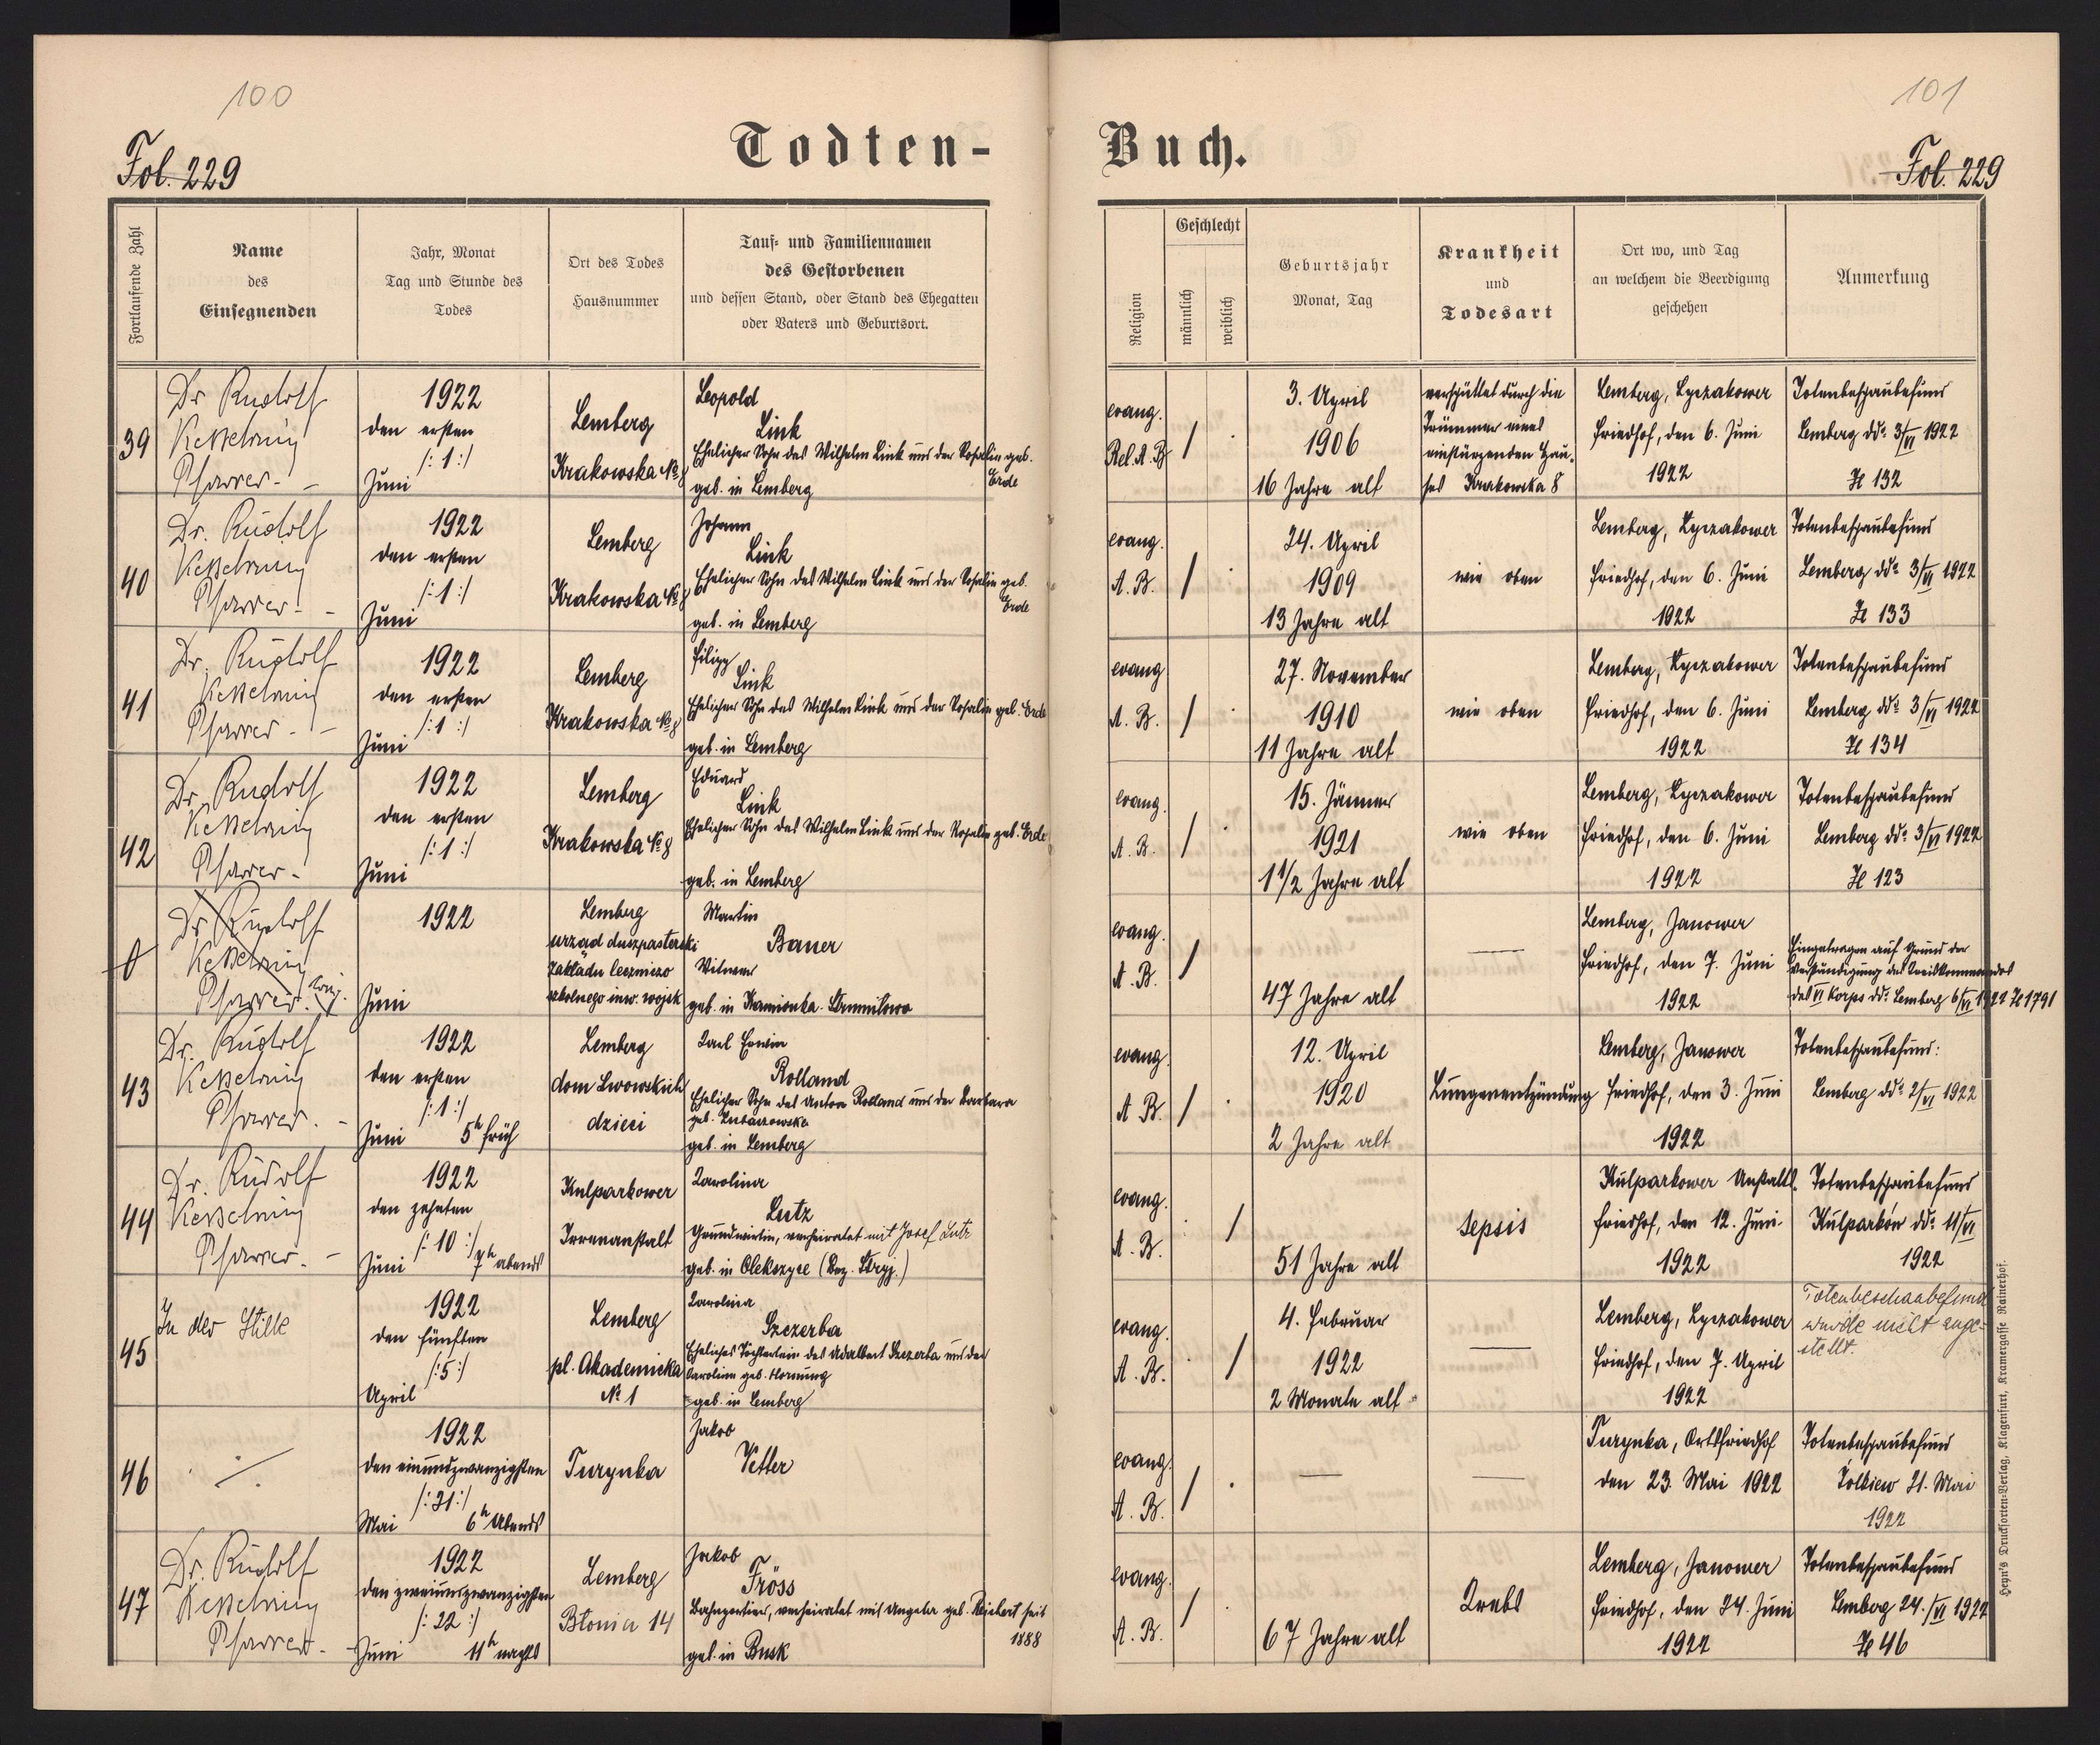 100
101
Todten-
Buch.
Fol. 229
Fol. 229
Fortlaufende Zahl
Name
des
Einsegnenden
Jahr, Monat
Tag und Stunde des
Todes
Ort des Todes
Hausnummer
Tauf- und Familiennamen
des Gestorbenen
und dessen Stand, oder Stand des Ehegatten
oder Vaters und Geburtsort.
Religion
Geschlecht
männlich
weiblich
Geburtsjahr
Monat, Tag
Krankheit
und
Todesart
Ort wo, und Tag
an welchem die Beerdigung
geschehen
Anmerkung
39
Dr Rudolf
Kesselring
Pfarrer. -
1922
den ersten
/: 1 :/
Juni
Lemberg
Krakowska № 8
Leopold
Link
Ehelicher Sohn des Wilhelm Link und der Rosalia geb.
Erde
geb. in Lemberg
evang.
Rel. A. B.
/
3. April
1906
16 Jahre alt
verschüttet durch die
Trümmer eines
einstürzenden Hau-
ses Krakowska 8
Lemberg, Lyczakower
Friedhof, den 6. Juni
1922
Totenbeschaubefund
Lemberg dd: 3/VI 1922
Zl 132
40
Dr. Rudolf
Kesselring
Pfarrer. -
1922
den ersten
/: 1 :/
Juni
Lemberg
Krakowska № 8
Johann
Link
Ehelicher Sohn des Wilhelm Link und der Rosalia geb.
Erde
geb. in Lemberg
evang.
A. B.
/
24. April
1909
13 Jahre alt
wie oben
Lemberg, Lyczakower
Friedhof, den 6. Juni
1922
Totenbeschaubefund
Lemberg dd: 3/VI 1922
Zl 133
41
Dr. Rudolf
Kesselring
Pfarrer. -
1922
den ersten
/: 1 :/
Juni
Lemberg
Krakowska № 8
Filipp
Link
Ehelicher Sohn des Wilhelm Link und der Rosalia geb. Erde
geb. in Lemberg
evang
A. B.
/
27. November
1910
11 Jahre alt
wie oben
Lemberg, Lyczakower
Friedhof, den 6. Juni
1922
Totenbeschaubefund
Lemberg dd: 3/VI 1922
Zl 134
42
Dr. Rudolf
Kesselring
Pfarrer. -
1922
den ersten
/: 1 :/
Juni
Lemberg
Krakowska № 8
Eduard
Link
Ehelicher Sohn des Wilhelm Link und der Rosalia geb. Erde
geb. in Lemberg
evang.
A. B.
/
15. Jänner
1921
1 1/2 Jahre alt
wie oben
Lemberg, Lyczakower
Friedhof, den 6. Juni
1922
Totenbeschaubefund
Lemberg dd: 3/VI 1922
Zl 123
Dr. Rudolf
Kesselring
Pfarrer.
1922
Juni
Lemberg
urząd duszpasterski
Zakładu leczniczo
szkolnego inw. wojsk
Martin
Bauer
Witwer
geb. in Kamionka-Strumiłowa
evang.
A. B.
/
47 Jahre alt
Lemberg, Janower
Friedhof, den 7. Juni
1922
Eingetragen auf Grund der
Verständigung des Kreiskommandos
des VI Korps dd: Lemberg 6/VI 1922 Zl 1791
43
Dr. Rudolf
Kesselring
Pfarrer. -
1922
den ersten
/: 1 :/
Juni 5h früh
Lemberg
dom Lwowskich
dzieci
Karl Erwin
Rolland
Ehelicher Sohn des Anton Rolland und der Barbara
geb. in Lemberg
evang.
A B.
/
12. April
1920
2 Jahre alt
Lungenentzündung
Lemberg, Janower
Friedhof, den 3. Juni
1922
Totenbeschaubefund:
Lemberg dd: 2/VI 1922
44
Dr. Rudolf
Kesselring
Pfarrer. -
1922
den zehnten
/: 10 :/
Juni 7h abends
Kulparkower
Irrenanstalt
Karolina
Lutz
Grundwirtin, verheiratet mit Josef Lutz
geb. in Olekszyce (Bez. Stryj.)
evang.
A. B.
/
51 Jahre alt
Sepsis
Kulparkower Anstalts.
Friedhof, den 12. Juni
1922
Totenbeschaubefund
Kulparków dd: 11/VI
1922
45
In der Stille
1922
den fünften
/: 5 :/
April
Lemberg
pl. Akademicka
№ 1
Karolina
Szczerba
Eheliches Töchterlein des Adalbert Szczerba und der
Karoline geb. Hornung
geb. in Lemberg
evang.
A. B.
/
4. Februar
1922
2 Monate alt
Lemberg, Lyczakower
Friedhof, den 7. April
1922
Totenbeschaubefund
wurde nicht ange-
stellt.
46
./.
1922
den einundzwanzigsten
/: 21 :/
Mai 6h Abends
Turynka
Jakob
Vetter
evang.
A. B.
/
Turynka, Ortsfriedhof
den 23. Mai 1922
Totenbeschaubefund
Żolkiew 21. Mai
1922
47
Dr. Rudolf
Kesselring
Pfarrer. -
1922
den zweiundzwanzigsten
/: 22 :/
Juni 11h nachts
Lemberg
Błonia 14
Jakob
Fröss
Bahnportier, verheiratet mit Angela geb. Reichert seit
1888
geb. in Busk
evang.
A. B.
/
67 Jahre alt
Krebs
Lemberg, Janower
Friedhof, den 24. Juni
1922
Totenbeschaubefund
Lemberg 24./VI 1922
Zl 46
Heyn's Drucksorten-Verlag, Klagenfurt, Kramergasse Rainerhof.